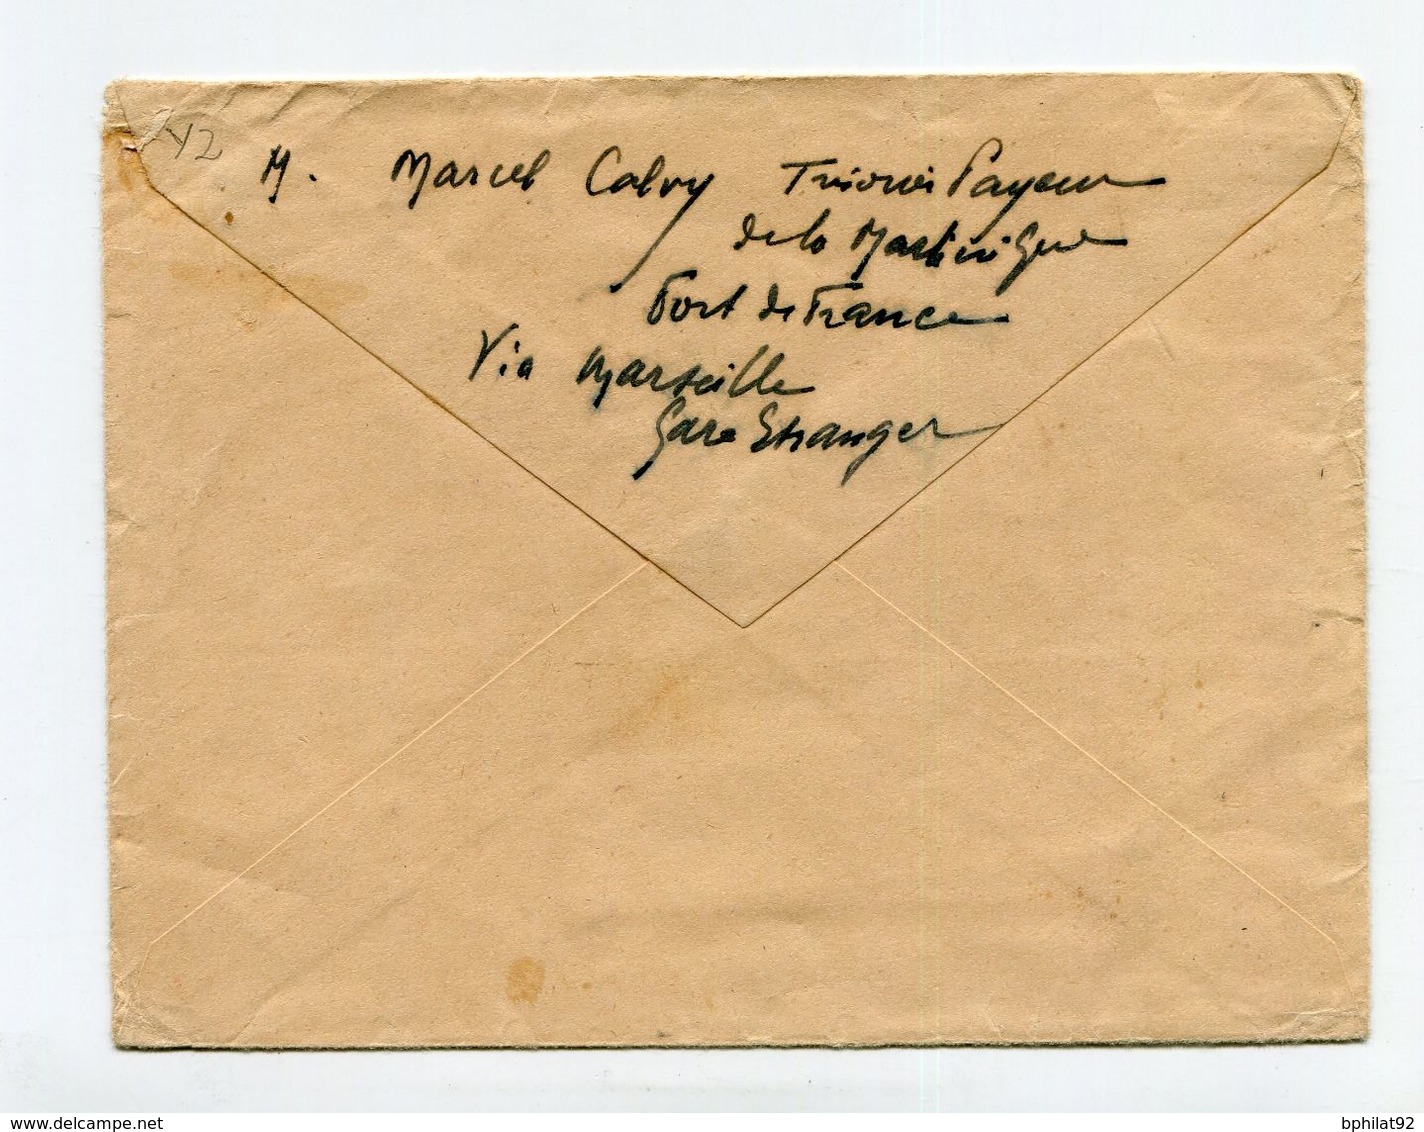 42
M. Marcel Calvy Trésorier Payeur
de la Martinique
Fort de France
Via Marseille
Gare Etranger
www.delcampe.net
bphilat92